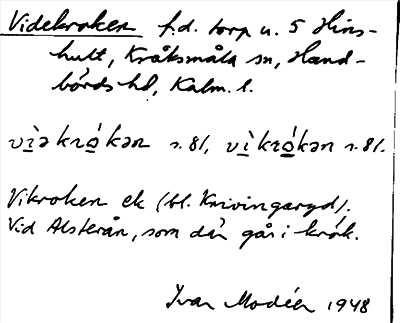 Videkroken f.d. torp u. 5 Hins-
hult, Kråksmåla sn, Hand-
börds hd, Kalm. l.
vìəkrókən s. 81, vìkrókən s. 81.
Vikroken ek (bl. Krivingaryd).
Vid Alsterån, som där går i krok.
Ivar Modéer 1948